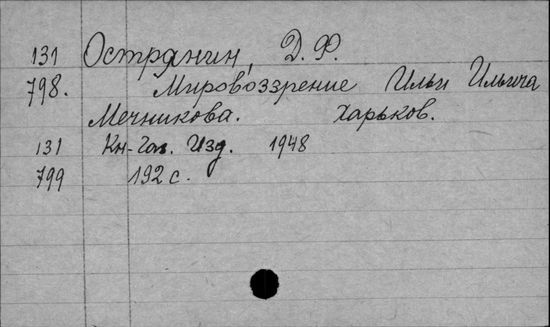 131 Острянин, Д. Ф.
798. Мировоззрение Ильи Ильича
Мечникова. Харьков.
131 Кн-Газ. Изд. 1948
799 192 с.